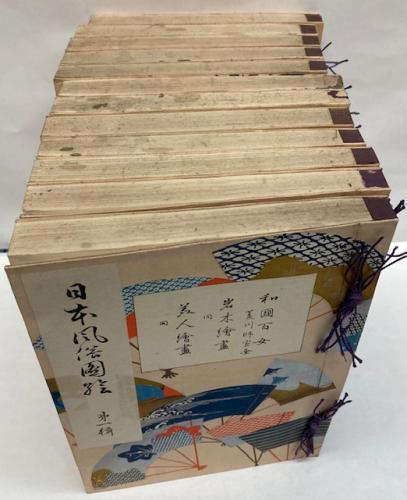 日本風俗圖繪
第一輯
和國百女
菱川師宣
岩木繪盡
同
美人繪盡
同